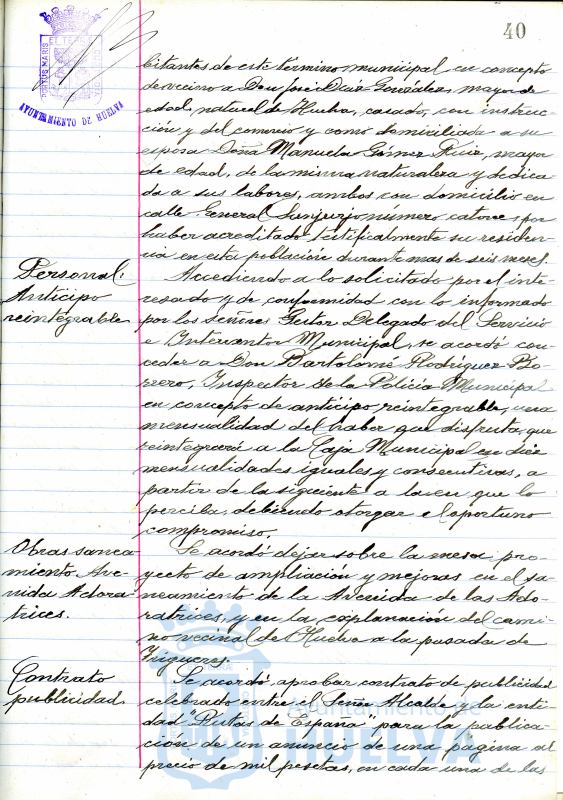 40
PORTUS MARIS
AYUNTAMIENTO DE HUELVA
bitantes de este término municipal, en concepto
de vecino a Don José Díaz González, mayor de
edad, natural de Huelva, casado, con instruc-
ción y del comercio y como domiciliada a su
esposa Doña Manuela Gómez Ruiz, mayor
de edad, de la misma naturaleza y dedica-
da a sus labores, ambos con domicilio en
calle General Sanjurjo número catorce, por
haber acreditado testificalmente su residen-
cia en esta población durante mas de seis meses.
Personal.
Anticipo
reintegrable.
Accediendo a lo solicitado por el inte-
resado y de conformidad con lo informado
por los Señores Gestor Delegado del Servicio
e Interventor Municipal, se acordó con-
ceder a Don Bartolomé Rodríguez Bo-
rrero, Inspector de la Policía Municipal
en concepto de anticipo reintegrable, una
mensualidad del haber que disfruta, que
reintegrará a la Caja Municipal en diez
mensualidades iguales y consecutivas, a
partir de la siguiente a la en que lo
perciba, debiendo otorgar el oportuno
compromiso.
Obras sanea-
miento Ave-
nida Adora-
trices.
Se acordó dejar sobre la mesa pro-
yecto de ampliación y mejoras en el sa-
neamiento de la Avenida de las Ado-
ratrices, y en la explanación del cami-
no vecinal de Huelva a la pasada de
Trigueros.
Contrato
publicidad.
Se acordó aprobar contrato de publicidad
celebrado entre el Señor Alcalde y la enti-
dad "Rutas de España" para la publica-
ción de un anuncio de una página al
precio de mil pesetas, en cada una de las
Ayuntamiento de
HUELVA